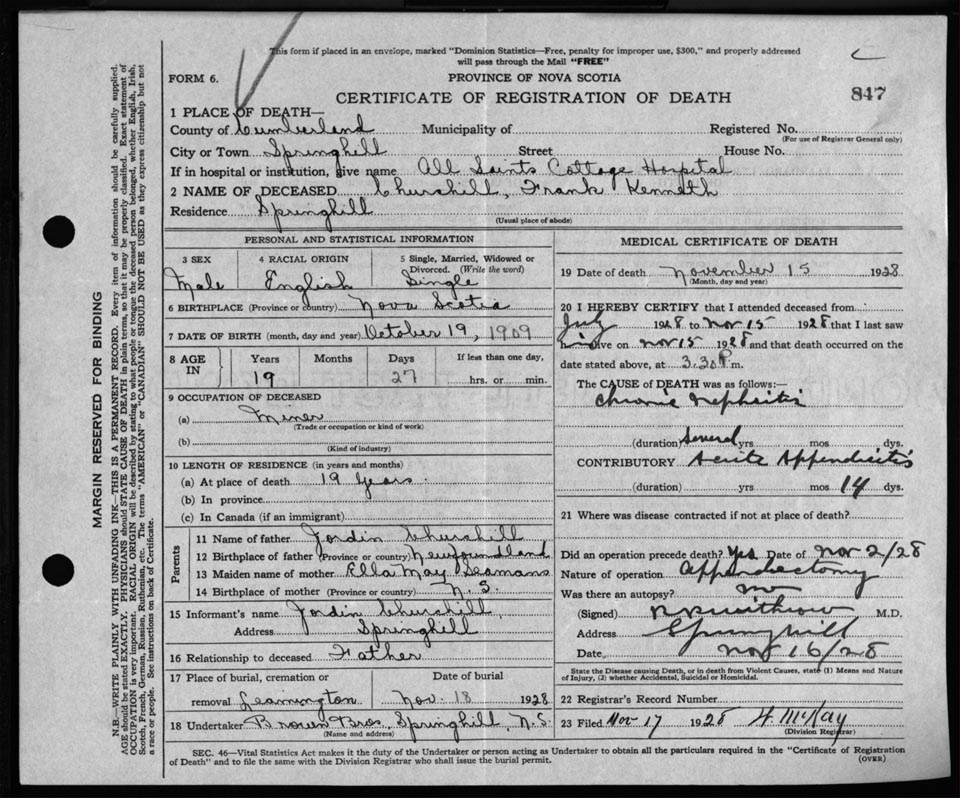 This form if placed in an envelope, marked "Dominion Statistics—Free, penalty for improper use, $300," and properly addressed
will pass through the Mail "FREE"
FORM 6.
PROVINCE OF NOVA SCOTIA
CERTIFICATE OF REGISTRATION OF DEATH
847
1 PLACE OF DEATH—
County of Cumberland Municipality of Registered No.
(For use of Registrar General only)
City or Town Springhill Street House No.
If in hospital or institution, give name All Saints Cottage Hospital
2 NAME OF DECEASED Churchill, Frank Kenneth
Residence Springhill
(Usual place of abode)
PERSONAL AND STATISTICAL INFORMATION
3 SEX
Male
4 RACIAL ORIGIN
English
5 Single, Married, Widowed or
Divorced. (Write the word)
Single
6 BIRTHPLACE (Province or country) Nova Scotia
7 DATE OF BIRTH (month, day and year) October 19, 1909
8 AGE IN
Years Months Days If less than one day,
19 27 hrs. or min.
9 OCCUPATION OF DECEASED
(a) Miner
(Trade or occupation or kind of work)
(b)
(Kind of industry)
10 LENGTH OF RESIDENCE (in years and months)
(a) At place of death 19 years
(b) In province
(c) In Canada (if an immigrant)
Parents
11 Name of father Jordin Churchill
12 Birthplace of father (Province or country) Newfoundland
13 Maiden name of mother Ella May Seamans
14 Birthplace of mother (Province or country) N. S.
15 Informant's name Jordin Churchill
Address Springhill
16 Relationship to deceased Father
17 Place of burial, cremation or Date of burial
removal Leamington Nov. 18 1928
18 Undertaker Brown Bros, Springhill, N.S.
(Name and address)
MEDICAL CERTIFICATE OF DEATH
19 Date of death November 15 1928
(Month, day and year)
20 I HEREBY CERTIFY that I attended deceased from
July 1928 to Nov 15 1928 that I last saw
him alive on Nov 15 1928 and that death occurred on the
date stated above, at 3.30 P m.
The CAUSE of DEATH was as follows:—
Chronic Nephritis
(duration) Several yrs mos dys.
CONTRIBUTORY Acute Appendicitis
(duration) yrs mos 14 dys.
21 Where was disease contracted if not at place of death?
Did an operation precede death? Yes Date of Nov 2/28
Nature of operation Appendectomy
Was there an autopsy? no
(Signed) M.D.
Address Springhill
Date Nov 16/28
State the Disease causing Death, or in death from Violent Causes, state (1) Means and Nature
of Injury, (2) whether Accidental, Suicidal or Homicidal.
22 Registrar's Record Number
23 Filed Nov 17 1928 H McKay
(Division Registrar)
SEC. 46—Vital Statistics Act makes it the duty of the Undertaker or person acting as Undertaker to obtain all the particulars required in the "Certificate of Registration
of Death" and to file the same with the Division Registrar who shall issue the burial permit.
(OVER)
MARGIN RESERVED FOR BINDING
N.B.—WRITE PLAINLY WITH UNFADING INK—THIS IS A PERMANENT RECORD. Every item of information should be carefully supplied.
AGE should be stated EXACTLY. PHYSICIANS should STATE CAUSE OF DEATH in plain terms, so that it may be properly classified. Exact statement of
OCCUPATION is very important. RACIAL ORIGIN will be described by stating to what people or tongue the deceased person belonged, whether English, Irish,
Scotch, French, German, Russian, Ruthenian, etc. The terms "AMERICAN" or "CANADIAN" SHOULD NOT BE USED as they express citizenship but not
a race or people. See instructions on back of Certificate.